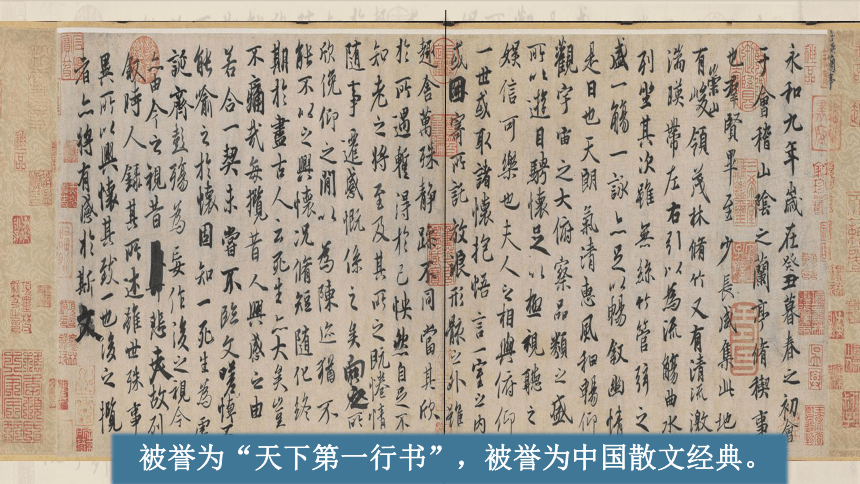 永和九年歲在癸丑暮春之初會
于會稽山陰之蘭亭脩稧事
也羣賢畢至少長咸集此地
有崇山峻領茂林脩竹又有清流激
湍暎帶左右引以為流觴曲水
列坐其次雖無絲竹管弦之
盛一觴一詠亦足以暢敘幽情
是日也天朗氣清惠風和暢仰
觀宇宙之大俯察品類之盛
所以遊目騁懷足以極視聽之
娛信可樂也夫人之相與俯仰
一世或取諸懷抱悟言一室之內
或因寄所託放浪形骸之外雖
趣舍萬殊靜躁不同當其欣
於所遇暫得於己怏然自足不
知老之將至及其所之既惓情
隨事遷感慨係之矣向之所
欣俛仰之閒以為陳迹猶不
能不以之興懷況脩短隨化終
期於盡古人云死生亦大矣豈
不痛哉每攬昔人興感之由
若合一契未嘗不臨文嗟悼不
能喻之於懷固知一死生為虛
誕齊彭殤為妄作後之視今
亦由今之視昔悲夫故列
敘時人錄其所述雖世殊事
異所以興懷其致一也後之攬
者亦將有感於斯文
被誉为“天下第一行书”，被誉为中国散文经典。